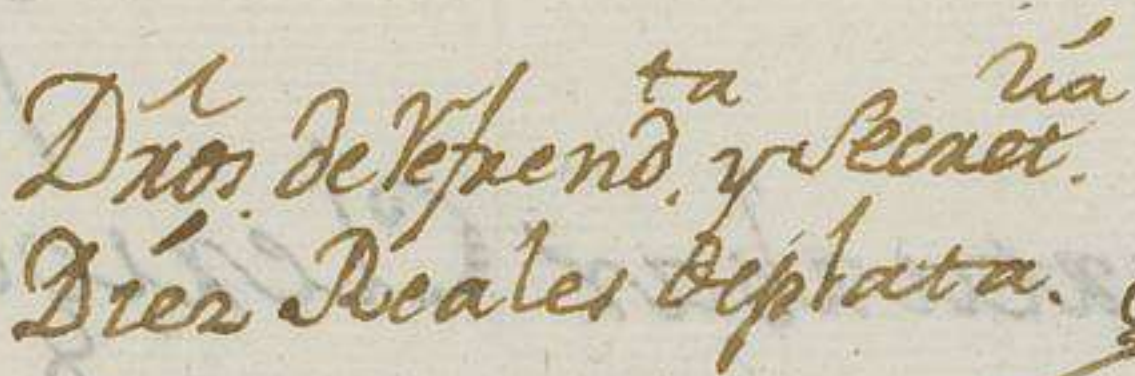 Dr̃os. de Refrend.ta y Secret.ria
Diez Reales de plata.